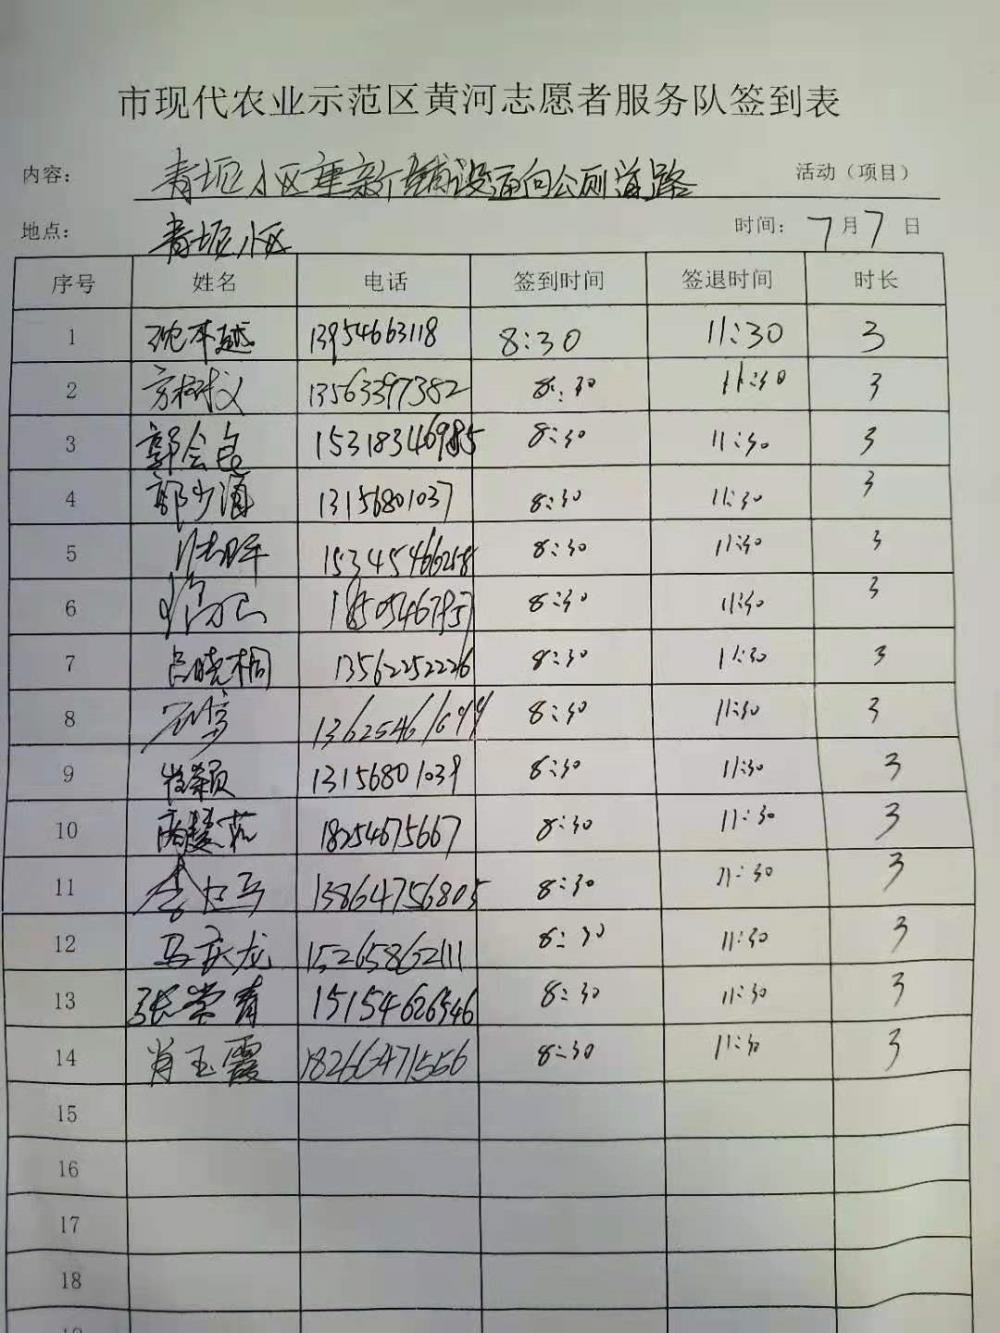 市现代农业示范区黄河志愿者服务队签到表
内容： 青垢小区重新铺设面向公厕道路 活动（项目）
地点： 青垢小区 时间： 7月7日
序号 姓名 电话 签到时间 签退时间 时长
1 13954663118 8:30 11:30 3
2 13563397382 8:30 11:30 3
3 郭会 15318346985 8:30 11:30 3
4 郭少 13156801037 8:30 11:30 3
5 8:30 11:30 3
6 8:30 11:30 3
7 吕晓桐 13562252226 8:30 11:30 3
8 8:30 11:30 3
9 13156801039 8:30 11:30 3
10 18254675667 8:30 11:30 3
11 13864756805 8:30 11:30 3
12 马庆龙 15265862111 8:30 11:30 3
13 张常青 15154626546 8:30 11:30 3
14 肖玉霞 18266471556 8:30 11:30 3
15
16
17
18